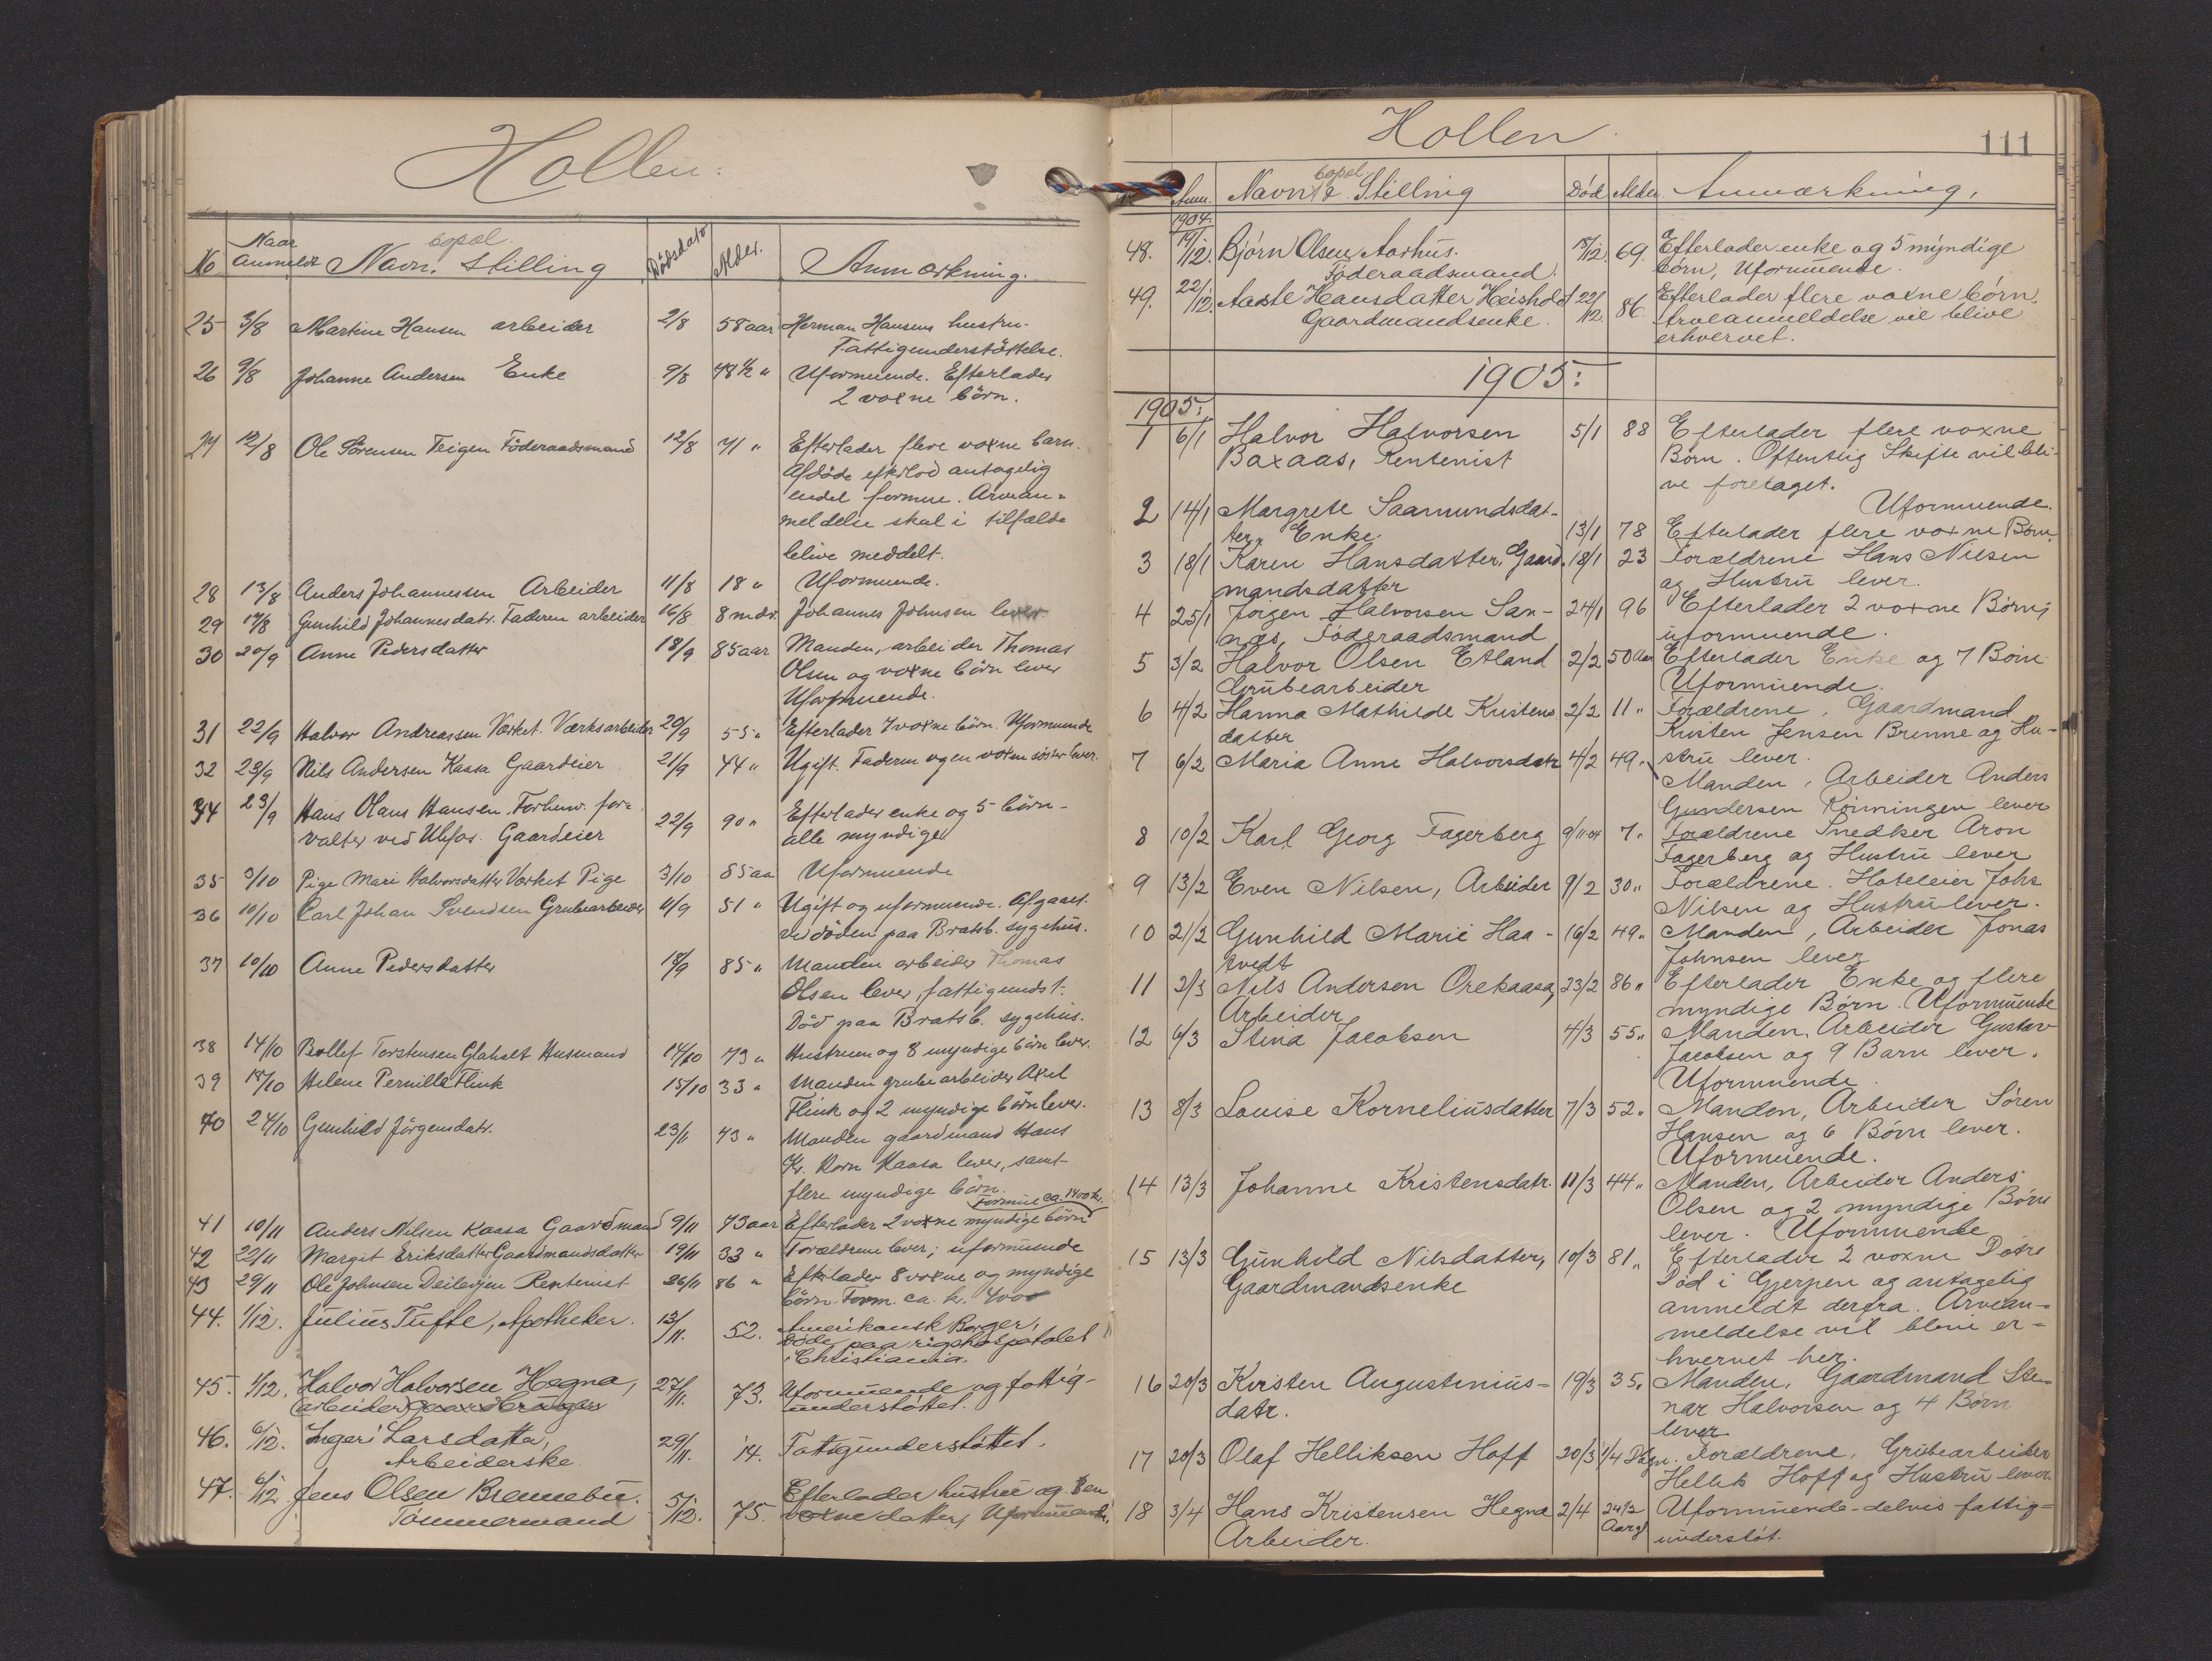 Hollen.
No Naar Anmeldt Navn. bopæl. Stilling Dödsdato Alder. Anmærkning.
25 3/8 Martine Hansen arbeider 2/8 58 aar Herman Hansens hustru.
Fattigunderstöttelse.
26 9/8 Johanne Andersen Enke 9/8 48 1/2 " Uformuende. Efterlader
2 voxne börn.
27 12/8 Ole Sörensen Teigen Föderaadsmand 12/8 71 " Efterlader flere voxne barn.
Afdöde efterlod antagelig
endel formue. Arvean=
meldelse skal i tilfælde
blive meddelt.
28 13/8 Anders Johannessen Arbeider 11/8 18 " Uformuende.
29 17/8 Gunhild Johannesdatr. Faderen arbeider 16/8 8 mdr. Johannes Johnsen lever
30 20/9 Anne Pedersdatter 18/9 85 aar Manden, arbeider Thomas
Olsen og voxne börn lever
Uformuende.
31 22/9 Halvor Andreassen Værket. Værksarbeider 20/9 55 " Efterlader 7 voxne börn. Uformuende
32 23/9 Nils Andersen Kaasa Gaardeier 21/9 44 " Ugift. Faderen og en voxen söster lever.
34 23/9 Hans Olaus Hansen. Forhenv. for=
valter ved Ulefos. Gaardeier 22/9 90 " Efterlader enke og 5 börn -
alle myndige
35 3/10 Pige Mari Halvorsdatter Værket Pige 3/10 85 aa Uformuende
36 10/10 Carl Johan Svendsen Grubearbeider 4/9 51 " Ugift og uformuende. Afgaaet
ved döden paa Bratsb. sygehus.
37 10/10 Anne Pedersdatter 18/9 85 " Manden arbeider Thomas
Olsen lever, fattigundst.
Död paa Bratsb. sygehus.
38 14/10 Bollef Torstensen Glaholt Husmand 14/10 73 " Hustruen og 8 myndige börn lever.
39 18/10 Helene Pernille Flink 15/10 33 " Manden grubearbeider Axel
Flink og 2 myndige börn lever.
40 24/10 Gunhild Jörgensdatr. 23/11 43 " Manden gaardmand Hans
Kr. Korn Kaasa lever, samt
flere myndige börn.
Formue ca. 1400 k.
41 10/11 Anders Nilsen Kaasa Gaardmand 9/11 73 aar Efterlader 2 voxne myndige börn
42 22/11 Margit Eriksdatter Gaardmandsdatter 19/11 33 " Forældrene lever; uformuende
43 29/11 Ole Johnsen Deilevjen Rentenist 26/11 86 " Efterlader 8 voxne og myndige
börn Form. ca. k. 4000
44. 1/12. Julius Tufte, Apotheker. 13/11. 52. Amerikansk Borger,
Döde paa rigshospitalet
i Christiania.
45. 1/12. Halvor Halvorsen Hegna,
arbeider 27/11. 73. Uformuende og fattig-
understöttet.
46. 6/12. Ingeri Larsdatter,
Arbeiderske. 29/11. 74. Fattigunderstöttet.
47. 6/12 Jens Olsen Brennebu.
Tömmermand 5/12. 75. Efterlader hustru og en
voxne datter, Uformuende.
Hollen.
111
Anm. Navn & bopæl Stilling Död Alder Anmærkning.
1904.
48. 19/12. Björn Olsen Aarhus.
Föderaadsmand. 18/12. 69. Efterlader enke og 5 myndige
börn, Uformuende.
49. 22/12. Aasle Hansdatter Heisholt
Gaardmandsenke. 22/12. 86. Efterlader flere voxne börn.
Arveanmeldelse vil blive
erhvervet.
1905:
1905:
1 6/1 Halvor Halvorsen
Baxaas, Rentenist 5/1 88 Efterlader flere voxne
Børn. Offentlig Skifte vil bli-
ve foretaget.
2 14/1 Margrete Saamundsdat-
ter, Enke. 13/1 78 Uformuende.
Efterlader flere voxne Børn.
3 18/1 Karen Hansdatter, Gaard-
mandsdatter 18/1 23 Forældrene Hans Nilsen
og Hustru lever.
4 25/1 Jørgen Halvorsen San-
næs, Føderaadsmand 24/1 96 Efterlader 2 voxne Børn;
uformuende.
5 3/2 Halvor Olsen Etland
Grubearbeider 2/2 50 Aar Efterlader Enke og 7 Børn
Uformuende.
6 4/2 Hanna Mathilde Kristens
datter 2/2 11 " Forældrene, Gaardmand
Kristen Jensen Brenne og Hu-
stru lever.
7 6/2 Maria Anne Halvorsdatr 4/2 49 " Manden, Arbeider Anders
Gundersen Rønningen lever
8 10/2 Karl Georg Fagerberg 9/11-04 7 " Forældrene Snedker Aron
Fagerberg og Hustru lever
9 13/2 Even Nilsen, Arbeider 9/2 30 " Forældrene. Hoteleier Johs
Nilsen og Hustru lever.
10 21/2 Gunhild Marie Haa-
tvedt 16/2 49 " Manden, Arbeider Jonas
Johnsen lever
11 2/3 Nils Andersen Orekaasa,
Arbeider 23/2 86 " Efterlader Enke og flere
myndige Børn. Uformuende
12 6/3 Stina Jacobsen 4/3 55 " Manden, Arbeider Gustav
Jacobsen og 9 Barn lever.
Uformuende.
13 8/3 Louise Korneliusdatter 7/3 52 " Manden, Arbeider Søren
Hansen og 6 Børn lever.
Uformuende.
14 13/3 Johanne Kristensdatr. 11/3 44 " Manden, Arbeider Anders
Olsen og 2 myndige Børn
lever. Uformuende
15 13/3 Gunhild Nilsdatter,
Gaardmandsenke 10/3 81 " Efterlader 2 voxne Døtre
Død i Gjerpen og antagelig
anmeldt derfra. Arvean-
meldelse vil blive er-
hvervet her.
16 20/3 Kirsten Augustinius-
datr. 19/3 35 " Manden, Gaardmand Ste-
nar Halvorsen og 4 Børn
lever
17 20/3 Olaf Helliksen Hoff 20/3 1/4 Døgn. Forældrene, Grubearbeider
Hellik Hoff og Hustru lever.
18 3/4 Hans Kristensen Hegna
Arbeider. 2/4 24 1/2 Aar gl Uformuende - delvis fattig-
understøt.